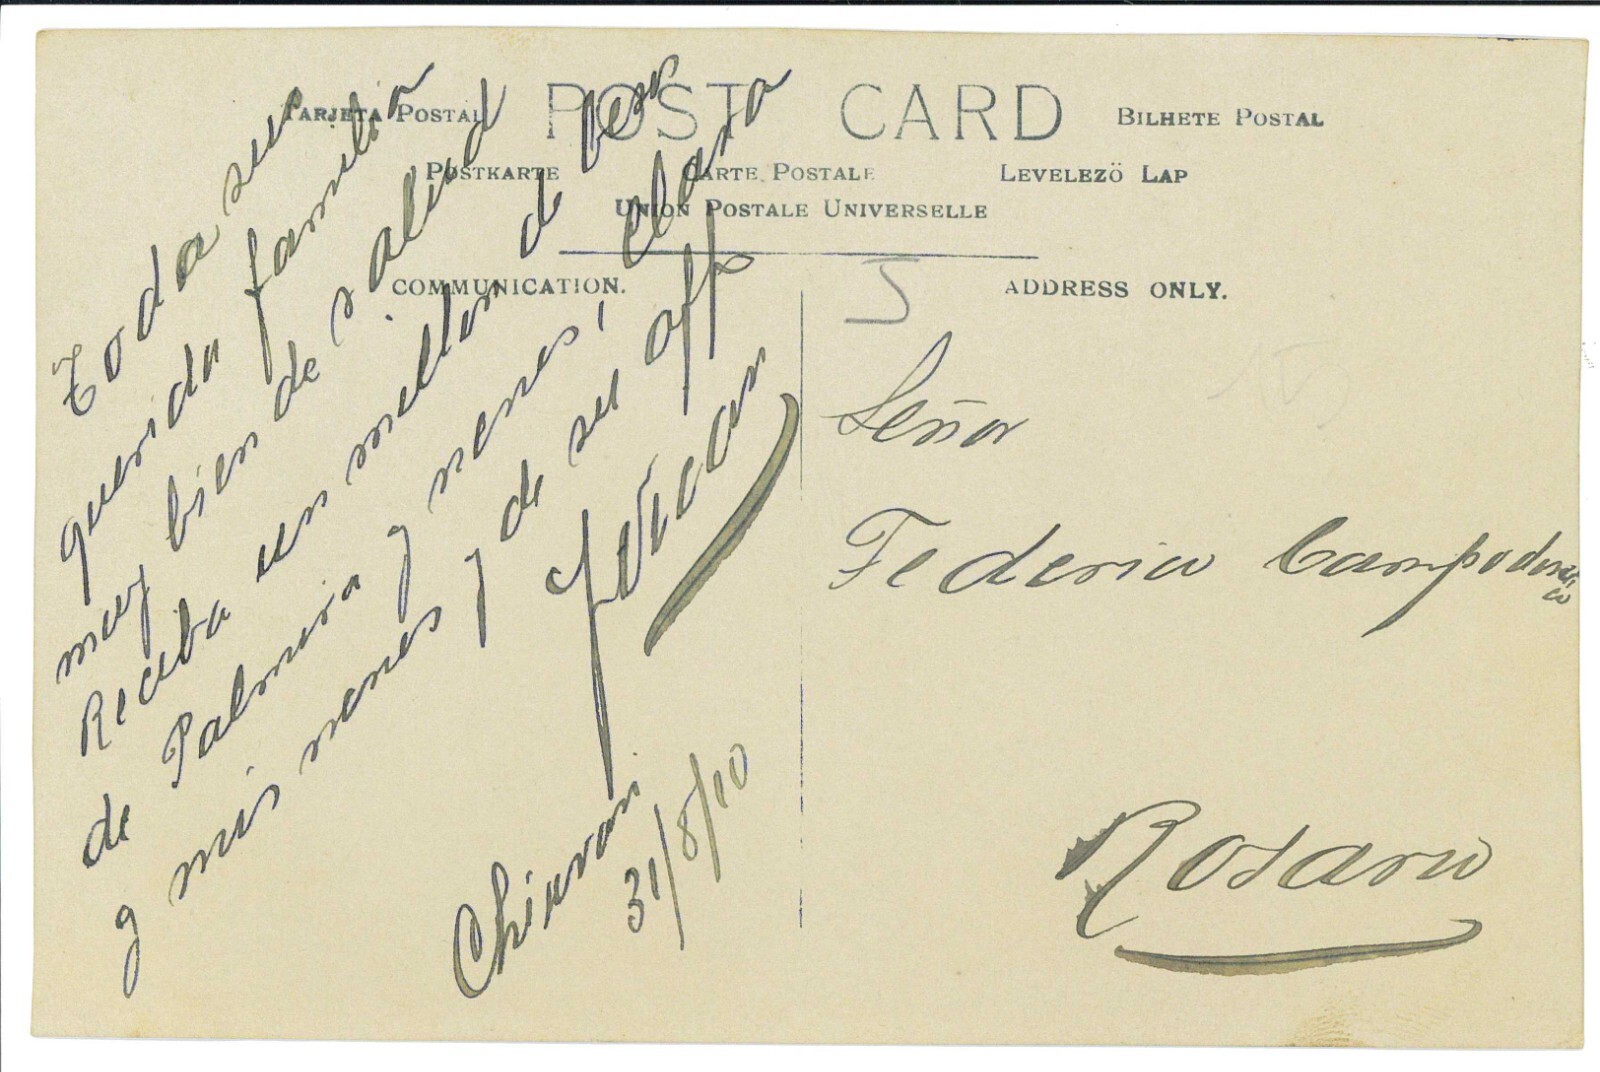 TARJETA POSTAL
POST CARD
BILHETE POSTAL
POSTKARTE
CARTE POSTALE
LEVELEZÖ LAP
UNION POSTALE UNIVERSELLE
COMMUNICATION.
ADDRESS ONLY.
Toda su
querida familia
muy bien de salud
Reciba un millon de besos
de Palmira y nenes, Clara
y mis nenes y de su affo
Chiuran
31/8/10
5
Señor
Federico Campodonico
Rosario